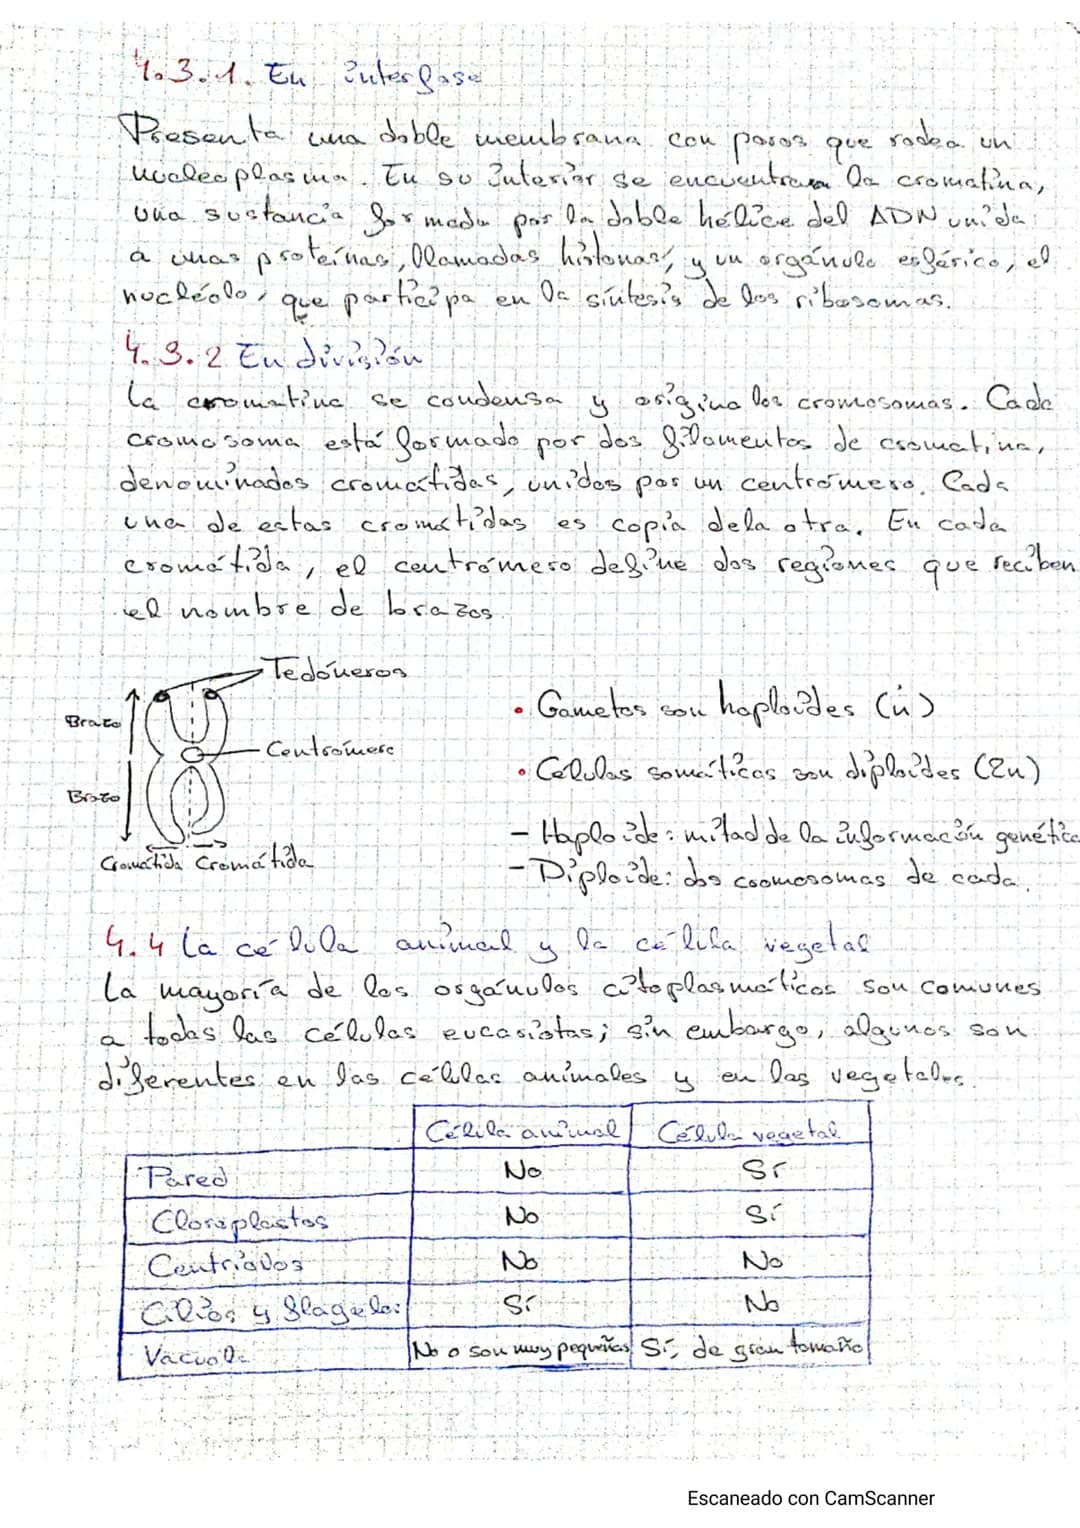 4.3.1. En interfase
Presenta una doble membrana con poros que rodea un
nucleoplasma. En su interior se encuentran la cromatina,
una sustancia formada por la doble hélice del ADN unida
a unas proteínas, llamadas histonas, y un orgánulo esférico, el
nucléolo, que participa en la síntesis de los ribosomas.
4.3.2 En división
La cromatina se condensa y origina los cromosomas. Cada
cromosoma está formado por dos filamentos de cromatina,
denominados cromátidas, unidos por un centrómero. Cada
una de estas cromátidas es copia de la otra. En cada
cromátida, el centrómero define dos regiones que reciben
el nombre de brazos.
Tedómeros
Brazo
Centrómero
Brazo
Cromátida Cromátida
• Gametos son haploides (n)
• Células somáticas son diploides (2n)
- Haploide: mitad de la información genética
- Diploide: dos cromosomas de cada.
4.4 La célula animal y la célula vegetal
La mayoría de los orgánulos citoplasmáticos son comunes
a todas las células eucariotas; sin embargo, algunos son
diferentes en las células animales y en las vegetales.
Célula animal Célula vegetal
Pared No Sí
Cloroplastos No Sí
Centriolos No No
Cilios y flagelos Sí No
Vacuola No o son muy pequeñas Sí, de gran tamaño
Escaneado con CamScanner